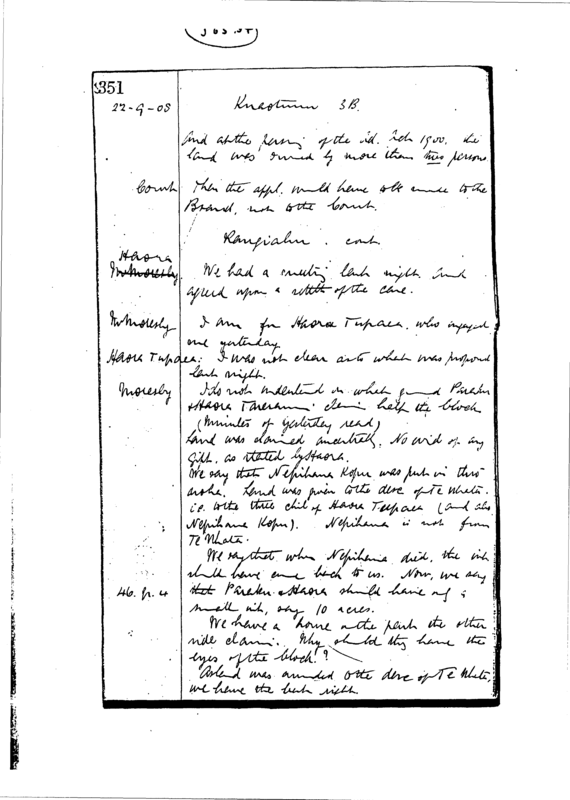 351
22-9-08
3B.
and at the passing of the Act 1900, the
land was owned by more than two persons.
Court Then the appl. would have to be made to the
Board, not to the Court.
Rangiahu. cont
Haora
Mr Moresby We had a meeting last night and
agreed upon a settlt of the case.
Mr Moresby I am for Haora Tupaea, who engaged
me yesterday
Haora Tupaea: I was not clear as to what was proposed
last night.
Moresby I do not understand on what ground Paraku
& Haora claim half the block
(minutes of yesterday read)
Land was claimed ancestrally. No evid of any
gift, as stated by Haora.
We say that Nepihana Kopu was put in thro'
aroha. Land was given to the desc of Te Whata.
i.e. to the three child of Haora Tupaea (and also
Nepihana Kopu). Nepihana is not from
Te Whata.
We say that, when Nepihana died, the int
shld have come back to us. Now, we say
46. that Paraku & Haora should have only a
small int, say 10 acres.
We have a house on the part the other
side claim. Why should they have the
eyes of the block?
As land was awarded to the desc of Te Whata,
we have the best right.